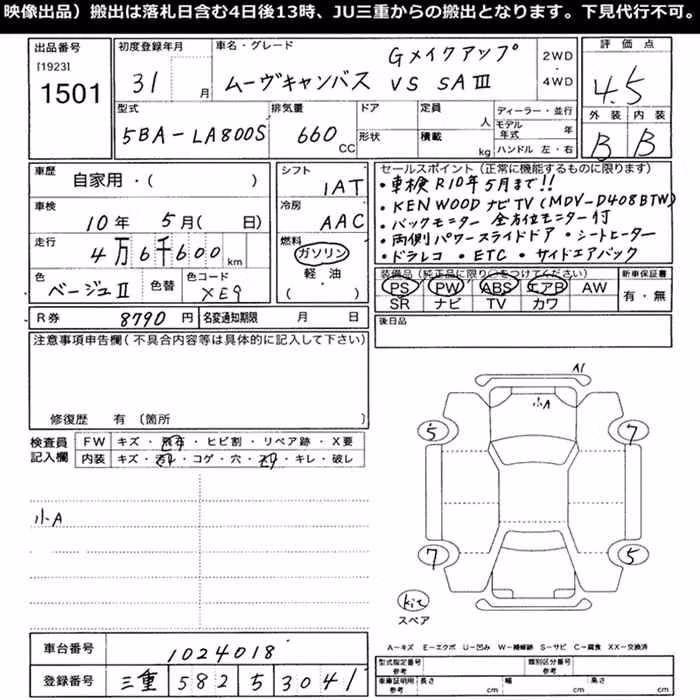 映像出品）搬出は落札日含む4日後13時、JU三重からの搬出となります。下見代行不可。
出品番号
[1923]
1501
初度登録年月
31 月
車名・グレード
Gメイクアップ
ムーヴキャンバス VS SAⅢ
2WD
・
4WD
評価点
4.5
外装 内装
B B
型式
5BA-LA800S
排気量
660 CC
ドア
形状
定員 人
積載 kg
ディーラー・並行
モデル年式 年
ハンドル 左・右
車歴
自家用・( )
車検
10年 5月( 日)
走行
4万6千600 km
色
ベージュⅡ
色替
色コード
XE9
シフト
IAT
冷房
AAC
燃料
ガソリン
軽・油
( ・ )
セールスポイント(正常に機能するものに限ります)
・車検R10年5月まで!!
・KENWOODナビTV(MDV-D408BTW)
・バックモニター 全方位モニター付
・両側パワースライドドア ・シートヒーター
・ドラレコ ・ETC ・サイドエアバック
装備品(純正品に限り○をつけてください)
PS PW ABS エアB AW
SR ナビ TV カワ
新車保証書
有・無
R券 8790 円
名変通知期限 月 日
後日品
注意事項申告欄(不具合内容等は具体的に記入して下さい)
修復歴 有 〔箇所 〕
検査員
記入欄
FW キズ・飛石・ヒビ割・リペア跡・X要
内装 キズ・汚れ・コゲ・穴・・キレ・破レ
小A
A1
小A
5 7
7 5
kit
スペア
A-キズ E-エクボ U-凹み W-補修跡 S-サビ C-腐食 XX-交換済
車台番号 1024018
登録番号 三重 582 5 3041
型式指定番号
参考
類別区分番号
参考
車庫証明用
参考
長さ cm 幅 cm 高さ cm